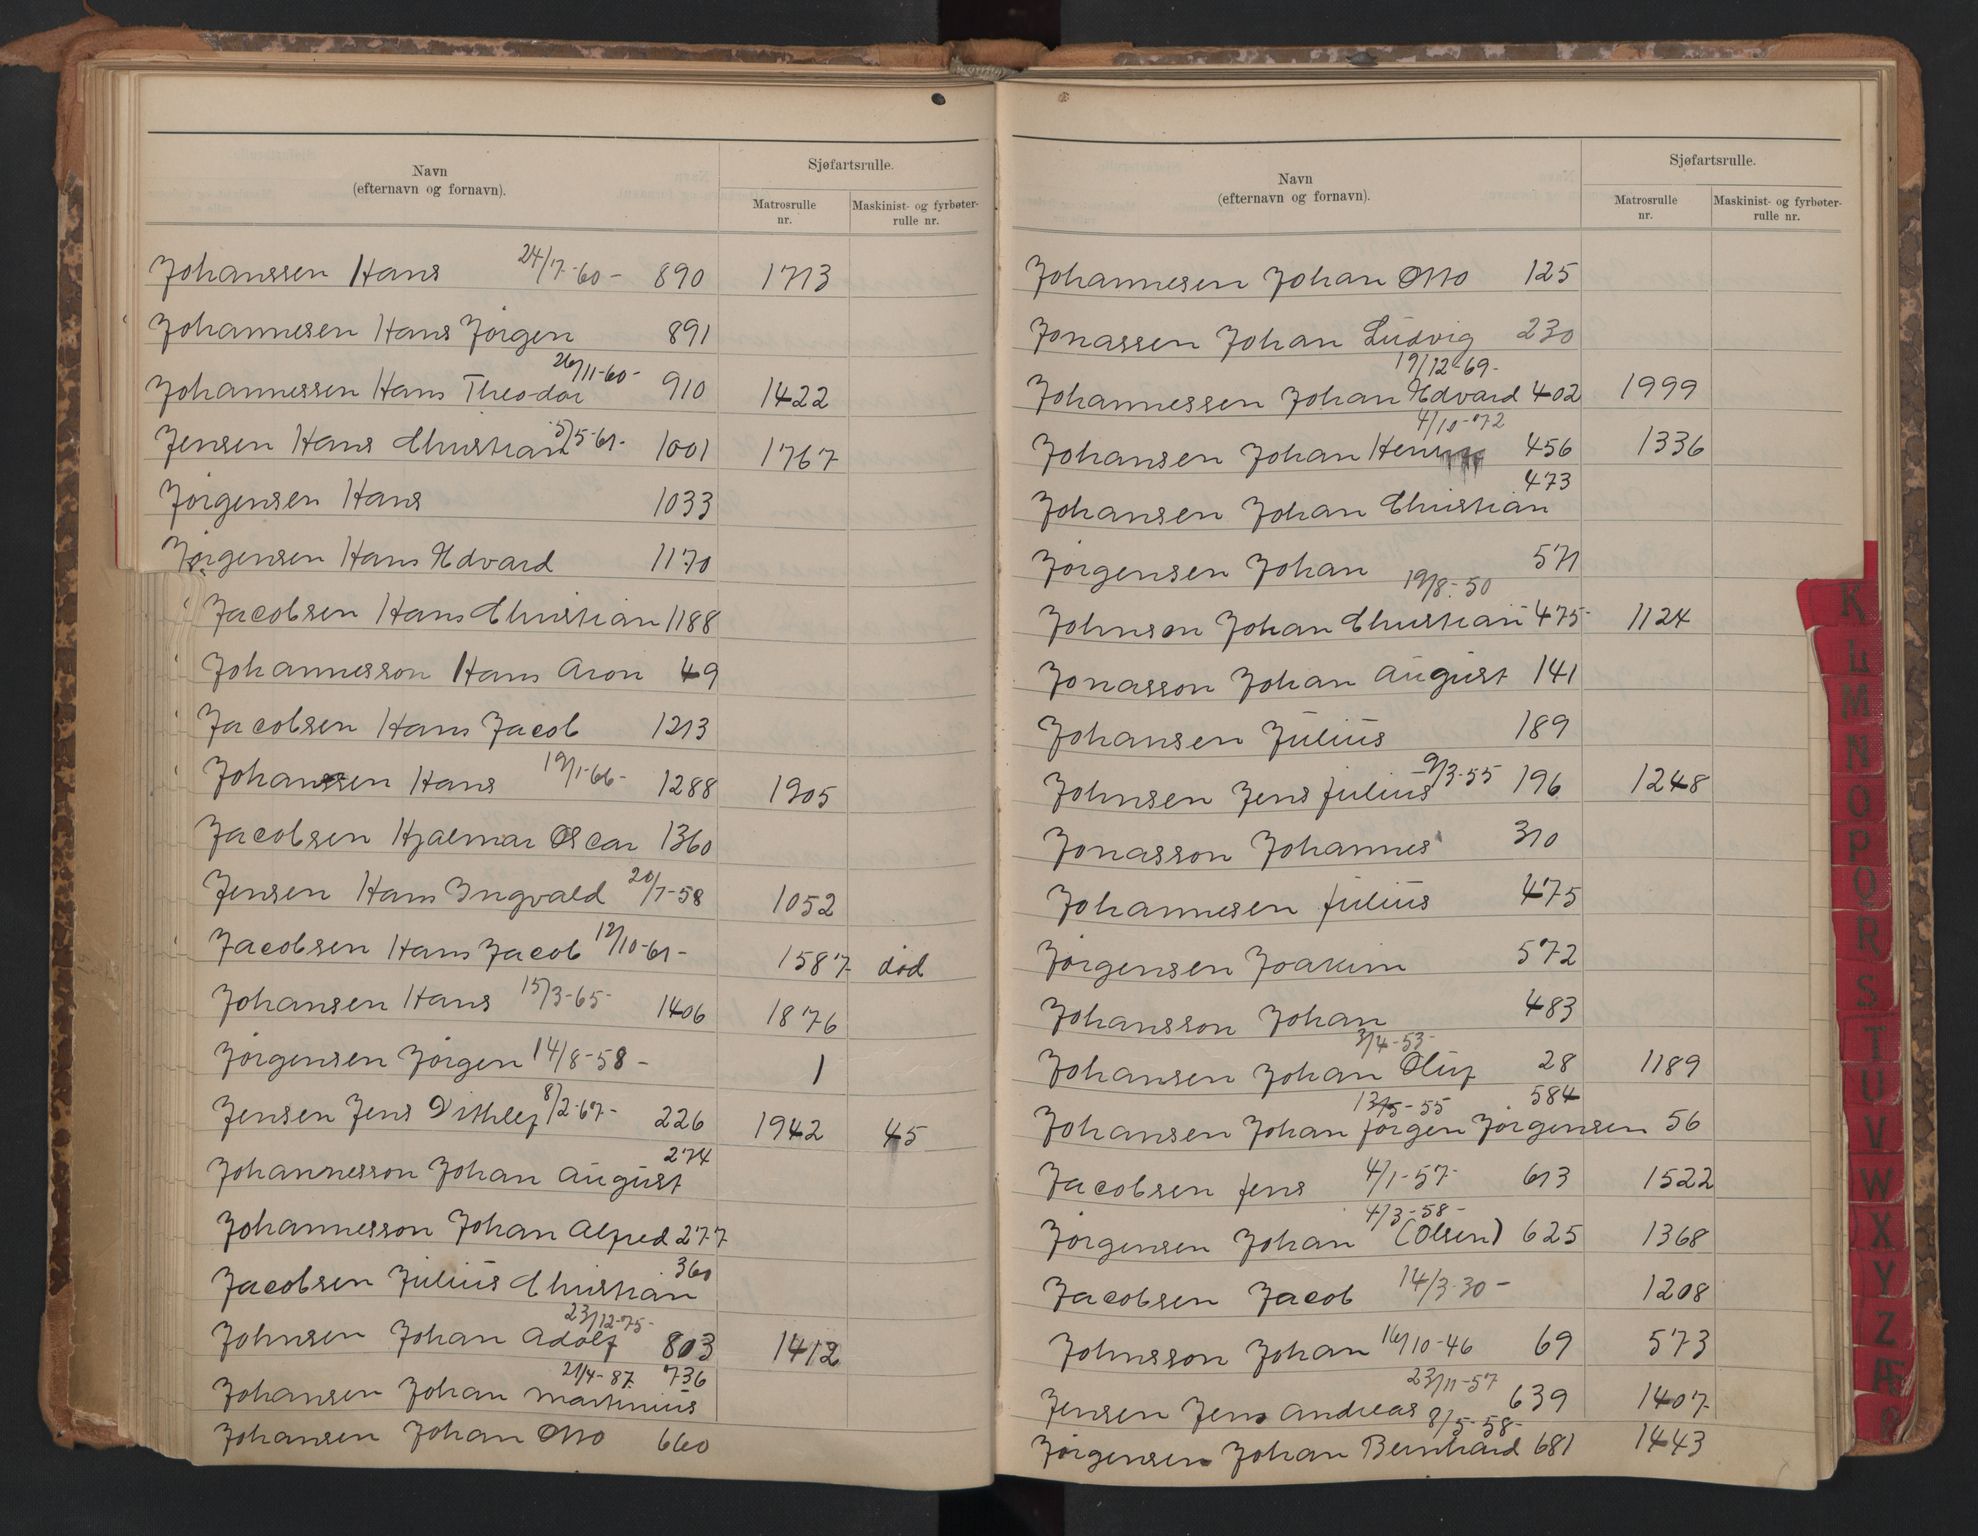 Navn
(efternavn og fornavn).
Sjøfartsrulle.
Matrosrulle nr.
Maskinist- og fyrbøter-rulle nr.
Johanssen Hans 24/7-60- 890 1713
Johannesen Hans Jørgen 891
Johannessen Hans Theodor 26/11-60- 910 1422
Jensen Hans Christian 5/5-61- 1001 1767
Jørgensen Hans 1033
Jørgensen Hans Edvard 1170
Jacobsen Hans Christian 1188
Johannesson Hans Aron 49
Jacobsen Hans Jacob 1213
Johanssen Hans 19/1-66- 1288 1905
Jacobsen Hjalmar Oscar 1360
Jensen Hans Ingvald 20/7-58 1052
Jacobsen Hans Jacob 12/10-61- 1587 død
Johansen Hans 15/3-65- 1406 1876
Jørgensen Jørgen 14/8-58- 1
Jensen Jens Dithlef 8/2-67- 226 1942 45
Johannesson Johan August 274
Johannesson Johan Alfred 277
Jacobsen Julius Christian 360
Johnsen Johan Adolf 23/12-75- 803 1412
Johansen Johan Martinius 21/4-87. 736
Johansen Johan Otto 660
Navn
(efternavn og fornavn).
Sjøfartsrulle.
Matrosrulle nr.
Maskinist- og fyrbøter-rulle nr.
Johannesen Johan Otto 125
Jonassen Johan Ludvig 230
Johannessen Johan Edvard 19/12-69- 402 1999
Johansen Johan 4/10-72 456 1336
Johansen Johan Christian 473
Jørgensen Johan 571
Johnson Johan Christian 19/8-50 475- 1124
Jonasson Johan August 141
Johansen Julius 189
Johnsen Jens Julius 9/3-55 196 1248
Jonasson Johannes 310
Johannesen Julius 475
Jørgensen Joakim 572
Johansson Johan 483
Johansen Johan Oluf 3/4-53- 28 1189
Johansen Johan Jørgen Jørgensen 13/5-55 584 56
Jacobsen Jens 4/1-57- 613 1522
Jørgensen Johan (Olsen) 4/3-58- 625 1368
Jacobsen Jacob 14/3-30- 1208
Johnsson Johan 16/10-46 69 573
Jensen Jens Andreas 23/11-57 639 1407
Jørgensen Johan Bernhard 8/5-58- 681 1443
K
L
M
N
O
P
Q
R
S
T
U
V
W
X
Y
Z
Æ
Ø